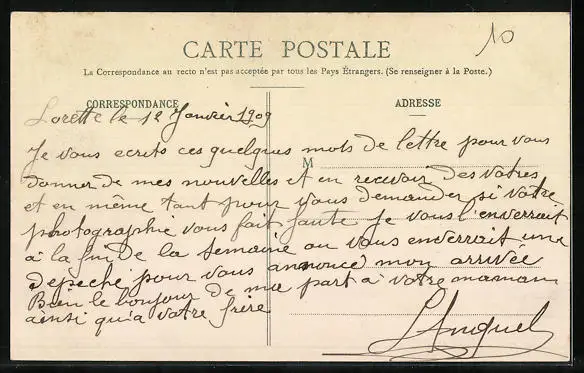 10
CARTE POSTALE
La Correspondance au recto n'est pas acceptée par tous les Pays Étrangers. (Se renseigner à la Poste.)
CORRESPONDANCE
ADRESSE
Lorette le 12 Janvier 1909
Je vous ecrits ces quelques mots de lettre pour vous
M
donner de mes nouvelles et en recevoir des votres
et en même tant pour vous demander si votre
photographie vous fait faute je vous l'enverrait
à la fin de la semaine ou vous enverrait une
depeche pour vous annonce mon arrivée
Bien le bonjour de ma part à votre maman
ainsi qu'a votre frère